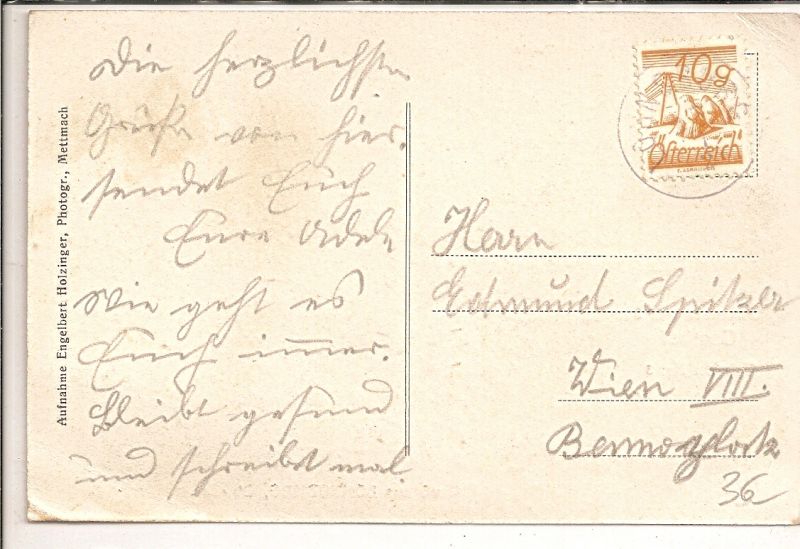 Die herzlichsten
Grüße von hier.
sendet Euch
Eure Adele
Wie geht es
Euch immer.
Bleibt gesund
und schreibt mal.
Aufnahme Engelbert Holzinger, Photogr., Mettmach
10g
Österreich
Herrn
Edmund Spitzer
Wien VIII.
36